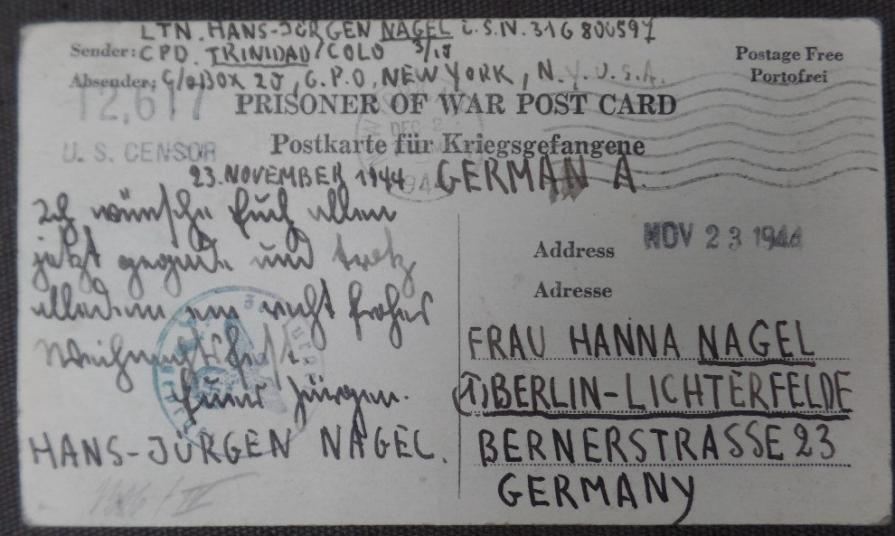 LTN. HANS-JÜRGEN NAGEL i.S.N. 31G 800597
Sender: CPD. TRINIDAD/COLO
Postage Free
Absender: C/O BOX 20, G.P.O, NEW YORK, N.Y. U.S.A.
Portofrei
12,617
PRISONER OF WAR POST CARD
U. S. CENSOR
Postkarte für Kriegsgefangene
23. NOVEMBER 1944 GERMAN A.
Ich wünsche Euch allen
jetzt gerade und trotz
alledem ein recht frohes
Weihnachtsfest.
Euer Jürgen.
HANS-JÜRGEN NAGEL.
Address NOV 23 1944
Adresse
FRAU HANNA NAGEL
(1) BERLIN-LICHTERFELDE
BERNERSTRASSE 23
GERMANY